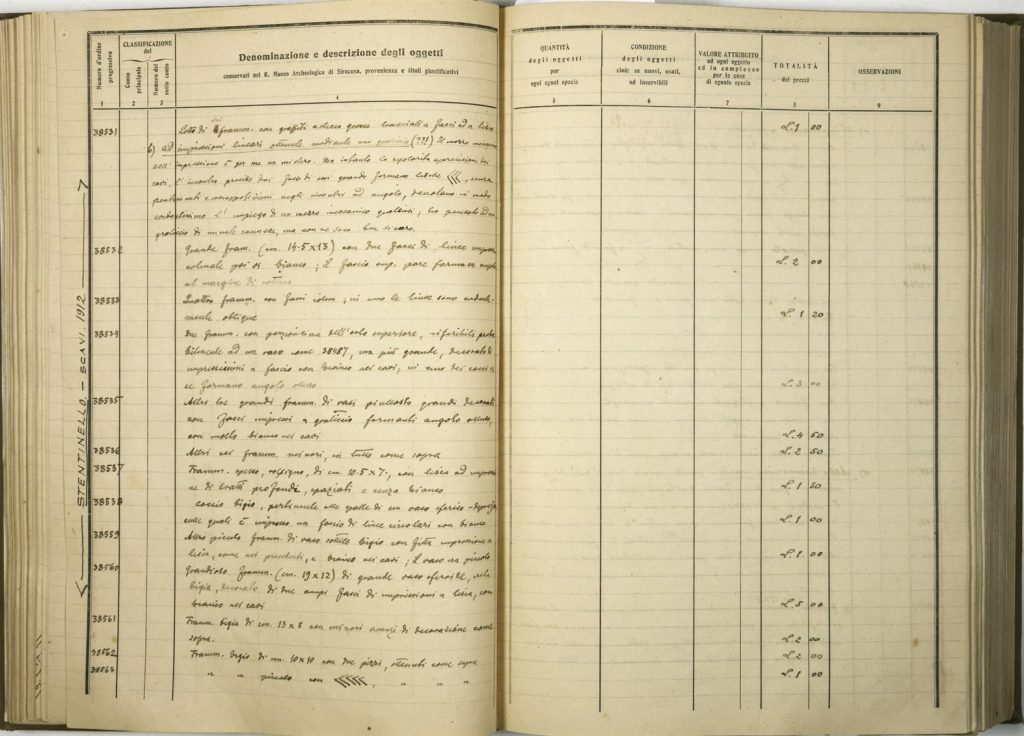 Numero d'ordine progressivo
CLASSIFICAZIONE del
Conto principale
Numero del sotto conto
Denominazione e descrizione degli oggetti
conservati nel R. Museo Archeologico di Siracusa, provenienza e titoli giustificativi
QUANTITÀ degli oggetti per ogni egual specie
CONDIZIONE degli oggetti cioè: se nuovi, usati, od inservibili
VALORE ATTRIBUITO ad ogni oggetto ed in complesso per le cose di eguale specie
TOTALITÀ dei prezzi
OSSERVAZIONI
1 2 3 4 5 6 7 8 9
STENTINELLO. – SCAVI 1912
38531 Lotto di framm. con graffiti a stecca grossa tracciati a fasci ad a lisca L. 1 00
b) ad impressioni lineari ottenute mediante un graticcio (??) Il mezzo meccanico
dell' impressione è per me un mistero. Ma intanto la
cavi, l' incontro preciso dei fasci di cui quando formano lische , senza
pentimenti e sovrapposizioni negli incontri ad angolo, denotano in modo
certissimo l' impiego di un mezzo meccanico qualsiasi; ho pensato ad un
graticcio di minute cannucce, ma non ne sono ben sicuro.
38532 Grande fram. (cm. 14.5 x 13) con due fasci di linee impresse
colmate poi di bianco; il fascio sup. pare formasse angolo
al margine di L. 2 00
38533 Quattro framm. con fasci idem; in uno le linee sono
mente oblique L. 1 20
38534 due framm. con porzioncina dell'orlo superiore, riferibili proba
bilmente ad un vaso come 38487, ma più grande, decorati di
impressioni a fascio con bianco nei cavi; in uno dei cocci
se formano angolo ottuso L. 3 00
38535 Altri tre grandi framm. di vasi piuttosto grandi decorati
con fasci impressi a graticcio formanti angolo ottuso,
con molto bianco nei cavi L. 4 50
38536 Altri sei framm. minori, in tutto come sopra L. 2 50
38537 Framm. spesso, rossigno, di cm. 10.5 x 7, con lisca ad impressio
ne di tratti profondi, spaziati e senza bianco L. 1 50
38538 coccio bigio, pertinente alle spalle di un vaso sferico-depresso,
sulle quali è impresso un fascio di linee circolari con bianco. L. 1 00
38559 Altro piccolo framm. di vaso sottile bigio con fitta impressione a
lisca, come nei precedenti, e bianco nei cavi; il vaso era piccolo L. 1 00
38560 Grandioso framm. (cm. 19 x 12) di grande vaso sferoide,
bigia, decorato di due ampi fasci di impressioni a lisca, con
bianco nei cavi L. 5 00
38561 Framm. bigio di cm. 13 x 8 con minori avanzi di decorazione come
sopra. L. 2 00
38562 Framm. bigio di cm. 10 x 10 con due pizzi, ottenuti come sopra L. 2 00
38563 " " piccolo con , " " " L. 1 00